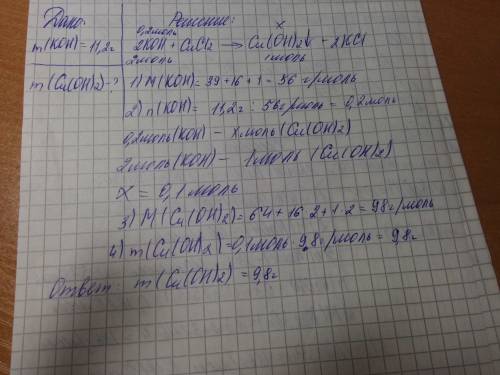 Дано:
Решение:
m(KOH)=11,2г
m(Cu(OH)2)-?
0,2моль x
2KOH + CuCl2 → Cu(OH)2↓ + 2KCl
2моль 1моль
1) M(KOH)=39+16+1=56 г/моль
2) n(KOH)= 11,2г : 56г/моль = 0,2моль
0,2моль(KOH) - xмоль(Cu(OH)2)
2моль(KOH) - 1моль (Cu(OH)2)
X = 0,1моль
3) M(Cu(OH)2)=64+16·2+1·2=98г/моль
4) m(Cu(OH)2)=0,1моль·98г/моль=9,8г
Ответ m(Cu(OH)2)=9,8г